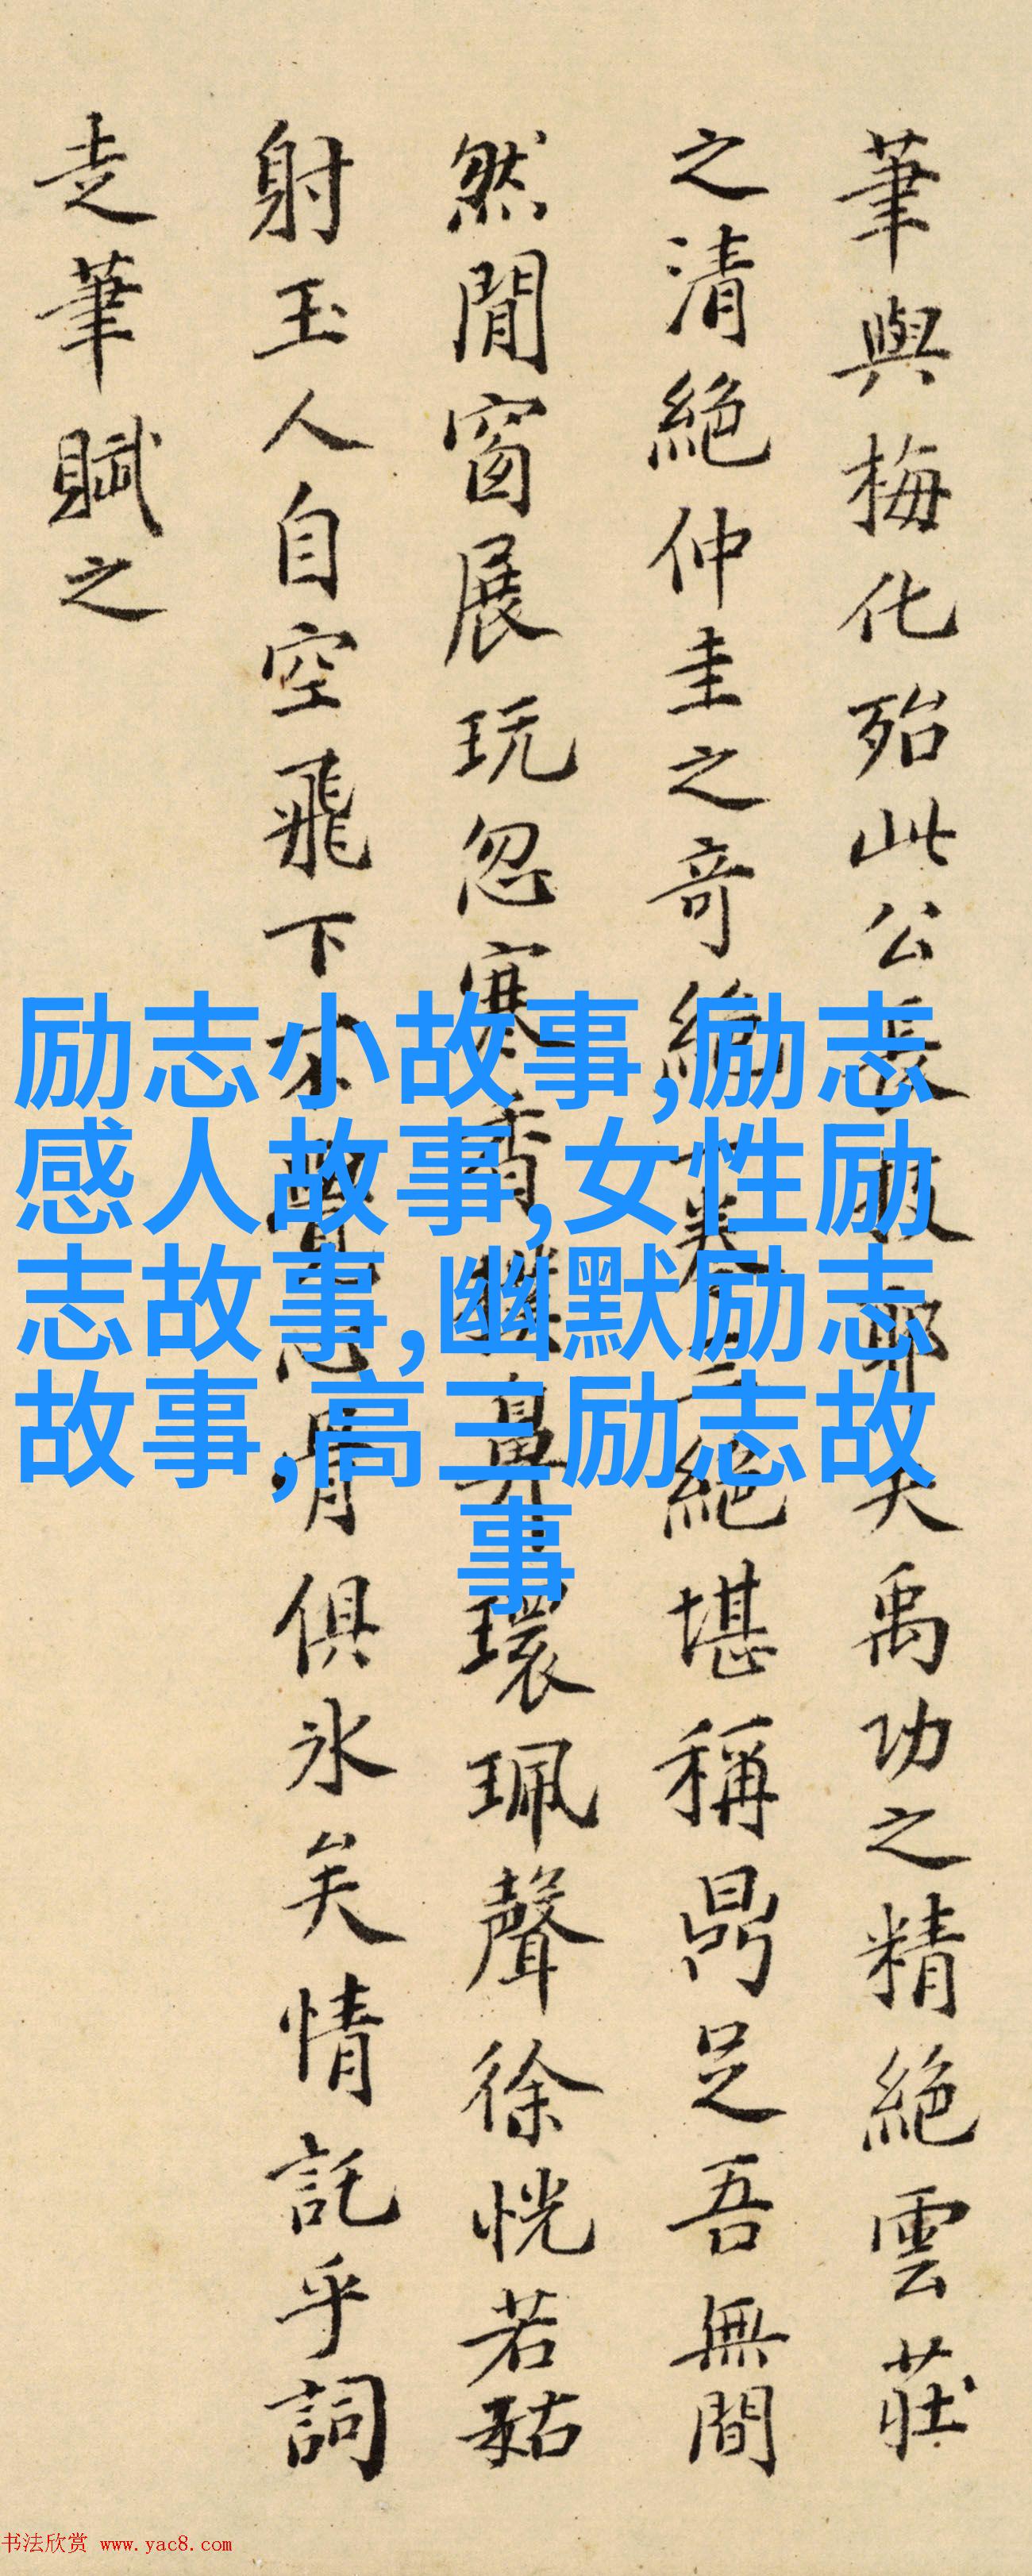 筆與梅化殆此公長技耶夫禹功之精絕雲莊
之清絕仲圭之奇絕一卷三絕堪稱鼎足吾無間
然閒窗展玩忽寒香撲鼻環珮聲徐恍若藐姑
射玉人自空飛下不覺心骨俱冰矣情託乎詞
走筆賦之
励志小故事,励志
感人故事,女性励
志故事,幽默励志
故事,高三励志故
事
书法欣赏 www.yac8.com